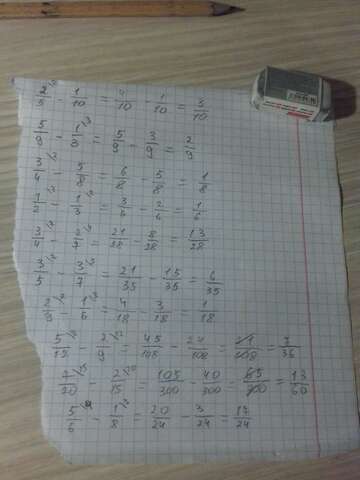 2/5 - 1/10 = 4/10 - 1/10 = 3/10
5/9 - 1/3 = 5/9 - 3/9 = 2/9
3/4 - 5/8 = 6/8 - 5/8 = 1/8
1/2 - 1/3 = 3/6 - 2/6 = 1/6
3/4 - 2/7 = 21/28 - 8/28 = 13/28
3/5 - 3/7 = 21/35 - 15/35 = 6/35
2/9 - 1/6 = 4/18 - 3/18 = 1/18
5/12 - 2/9 = 45/108 - 24/108 = 21/108 = 7/36
7/20 - 2/15 = 105/300 - 40/300 = 65/300 = 13/60
5/6 - 1/8 = 20/24 - 3/24 = 17/24